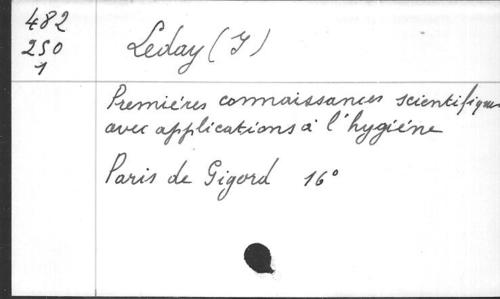 482
250
1
Leday (J)
Premiéres connaissances scientifiques
avec applications à l'hygiéne
Paris de Gigord 16°